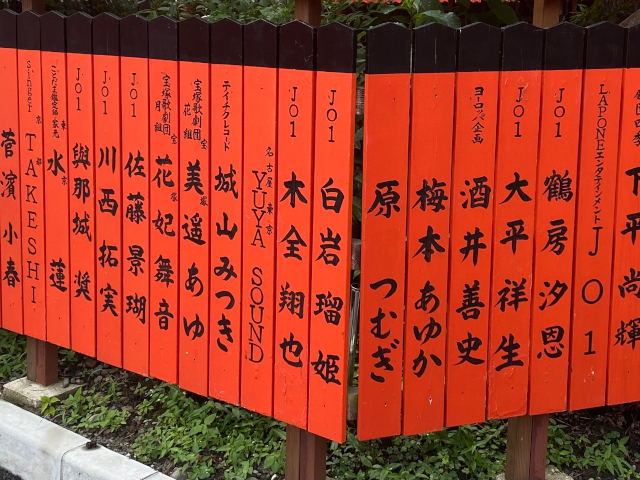 下平尚輝
LAPONEエンタテインメント JO1
JO1 鶴房汐恩
JO1 大平祥生
ヨーロッパ企画 酒井善史
梅本あゆか
原つむぎ
JO1 白岩瑠姫
JO1 木全翔也
名古屋 東京 YUYA SOUND
テイチクレコード 城山みつき
宝塚歌劇団 花組 宝塚 美遥あゆ
宝塚歌劇団 月組 宝塚 花妃舞音
JO1 佐藤景瑚
JO1 川西拓実
JO1 與那城奨
東京 水蓮
singer 京都 TAKESHI
菅濱小春